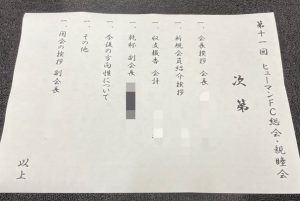 第十一回 ヒューマンFC総会・親睦会
次第
一、会長挨拶 会長
一、新規会員紹介挨拶
一、収支報告 会計
一、乾杯 副会長
一、今後の方向性について
一、その他
一、閉会の挨拶 副会長
以上